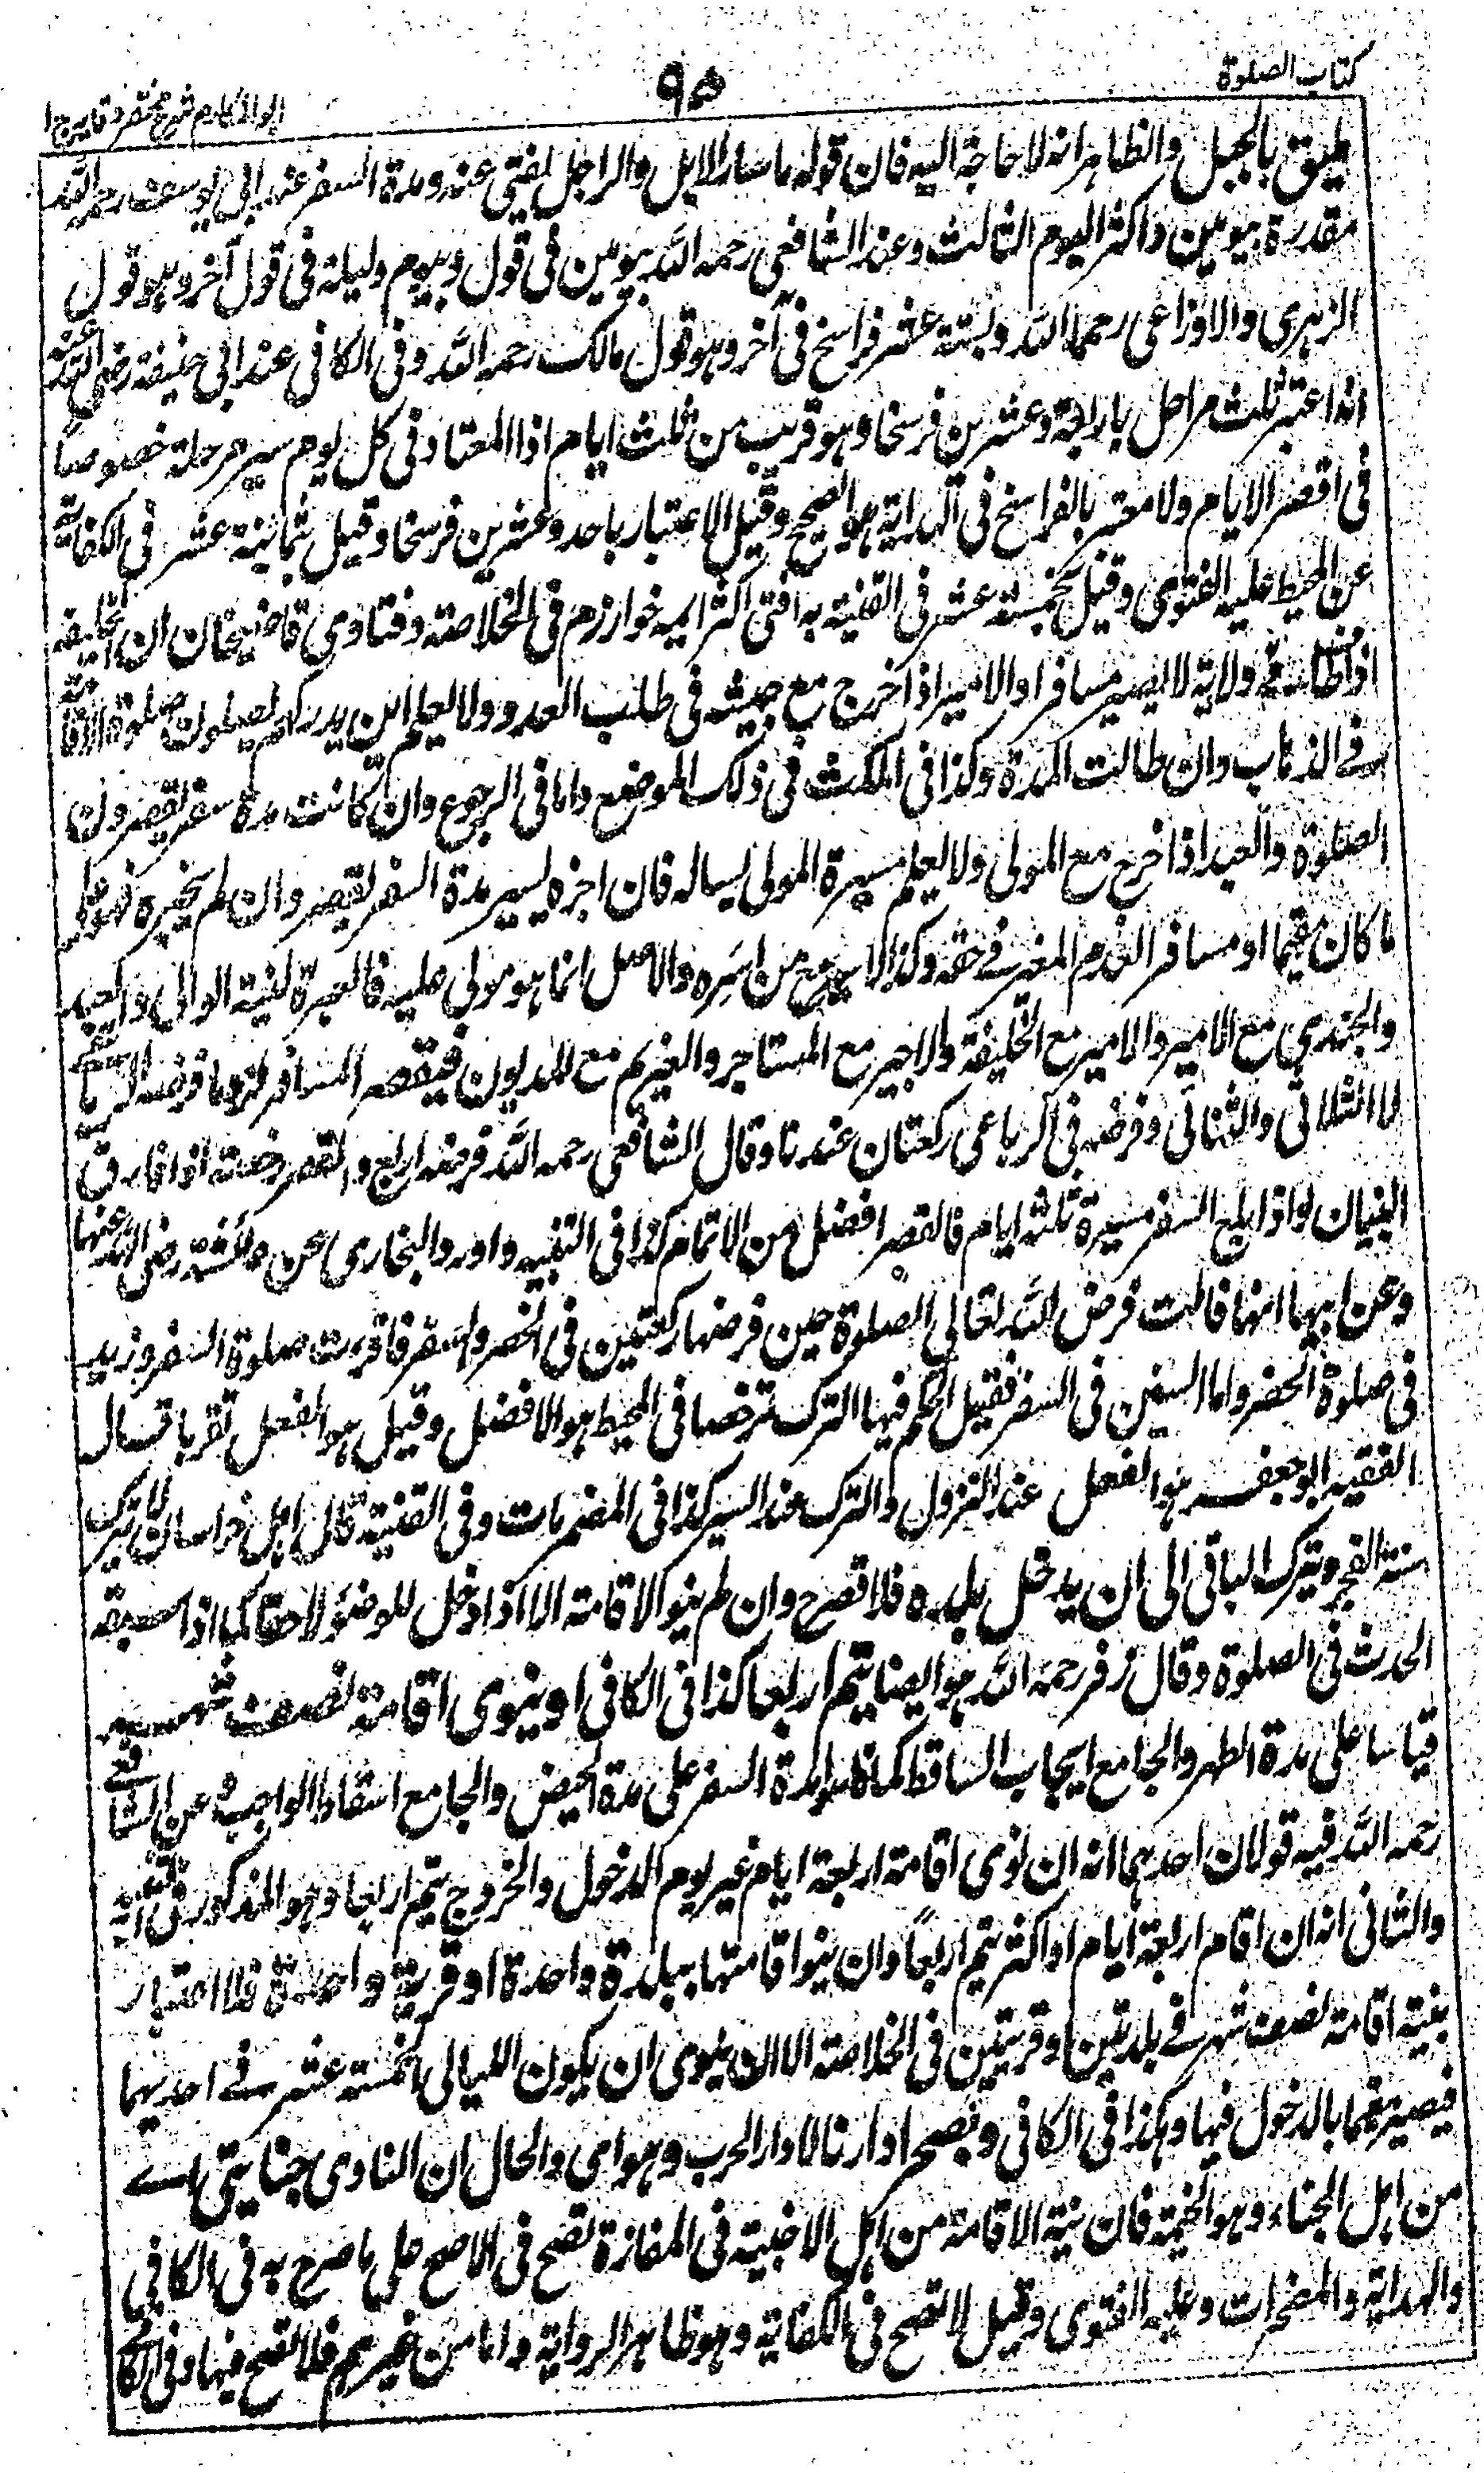 كتاب الصلوة
٩٥
ابو المكارم شرح مختصر وقايه ج ١
يليق بالجبل والظاهر انه لا حاجة اليه فان قوله ما سار الابل والراجل يفتى عنه ومدة السفر عند ابى يوسف رحمه الله
مقدرة بيومين واكثر اليوم الثالث وعند الشافعى رحمه الله بيومين فى قول وبيوم وليلة فى قول آخر وهو قول
الزهرى والاوزاعى رحمهما الله وبستة عشر فراسخ فى آخر وهو قول مالك رحمه الله وفى الكافى عند ابى حنيفة رضى الله عنه
انه اعتبر ثلث مراحل باربعة وعشرين فرسخا وهو قريب من ثلث ايام اذا المعتاد فى كل يوم سير مرحلة خصوصا
فى اقصر الايام ولا معتبر بالفراسخ فى الهداية هو الصحيح وقيل الاعتبار باحد وعشرين فرسخا وقيل ثمانية عشر فى الكفاية
عن المحيط عليه الفتوى وقيل بخمسة عشر فى القنية به افتى اكثر ايمه خوارزم فى الخلاصة وفتاوى قاضيخان ان الخليفة
اذا طاف فى ولايته لا يصير مسافرا والامير اذا خرج مع جيشه فى طلب العدو ولا يعلم اين يدركهم يصلون صلوة الاقامة
فى الذهاب وان طالت المدة وكذا فى المكث فى ذلك الموضع واما فى الرجوع وان كانت مدة سفر يقصرون
الصلوة والعبد اذا خرج مع المولى ولا يعلم مسيرة المولى يساله فان اخبره يسير مدة السفر يقصر وان لم يخبره فهو على
ما كان مقيما او مسافرا لعدم المغير فى حقه وكذا الاسير مع من اسره والاصل انما هو مولى عليه فالعبرة لنية الوالى والعبد
والجندى مع الامير والامير مع الخليفة والاجير مع المستاجر والغريم مع المديون فيقصر المسافر لزوما فرضه الرباعى
لا الثلاثى والثنائى وفرضه فى الرباعى ركعتان عندنا وقال الشافعى رحمه الله فرضه اربع والقصر رخصة اذا فارق
البنيان لو اذا بلغ السفر مسيرة ثلثة ايام فالقصر افضل من الاتمام كذا فى التنبيه واورد البخارى عن عائشة رضى الله عنها
وعن ابيها انها قالت فرض الله تعالى الصلوة حين فرضها ركعتين فى الحضر والسفر فاقرت صلوة السفر وزيد
فى صلوة الحضر واما السنن فى السفر فقيل الحكم فيها الترك ترخصا فى المحيط هو الافضل وقيل هو الفعل تقربا قال
الفقيه ابو جعفر هو الفعل عند النزول والترك عند السير كذا فى المضمرات وفى القنية قال اهل خراسان لا يترك
سنة الفجر ويترك الباقى الى ان يدخل بلده فلا قصر ح وان لم ينو الاقامة الا اذا دخل للوضوء لاحقا كما اذا سبقه
الحدث فى الصلوة وقال زفر رحمه الله هو ايضا يتم اربعا كذا فى الكافى او ينوى اقامة نصف شهر
قياسا على مدة الطهر والجامع ايجاب الساقط كما قاسوا مدة السفر على مدة الحيض والجامع اسقاط الواجب وعن الشافعى
رحمه الله فيه قولان احدهما انه ان نوى اقامة اربعة ايام غير يوم الدخول والخروج يتم اربعا وهو المذكور فى التنبيه
والثانى انه ان اقام اربعة ايام او اكثر يتم اربعاً وان ينوا اقامتها ببلدة واحدة او قرية واحدة فلا اعتبار
بنية اقامة نصف شهر فى بلدتين او قريتين فى الخلاصة الا ان ينوى ان يكون الليالى الخمسة عشر فى احديهما
فيصير مقيما بالدخول فيها وهكذا فى الكافى وبصحراء دارنا لا دار الحرب وهوامى والحال ان الناوى خبائى اى
من اهل الخباء وهو الخيمة فان نية الاقامة من اهل الاخبية فى المفازة تصح فى الاصح على ما صرح به فى الكافى
والهداية والمضمرات وعليه الفتوى وقيل لا تصح فى الكفاية وهو ظاهر الرواية واما من غيرهم فلا تصح فيها وفى الكا